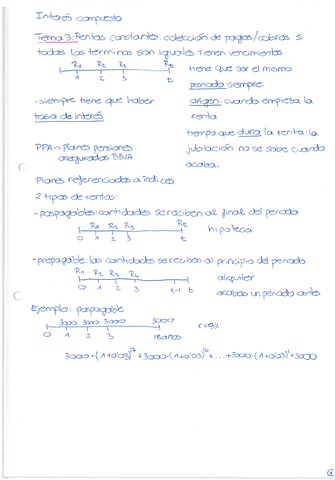 Interés compuesto
Tema 3: Rentas constantes: colección de pagos/cobros si
todos los términos son iguales tienen vencimientos
R1 R2 R3 Rt
1 2 3 t
tiene que ser el mismo
periodo siempre.
- siempre tiene que haber
tasa de interés
origen: cuando empieza la
renta
tiempo que dura la renta: la
jubilación no se sabe cuando
acaba.
PPA → Planes pensiones
asegurados BBVA
Planes referenciados a índices
2 tipos de rentas:
- pospagables: cantidades se reciben al final del periodo
R1 R2 R3 Rt
0 1 2 3 t
hipoteca
- prepagable: las cantidades se reciben al principio del periodo
R1 R2 R3 R4
0 1 2 3 t-1 t
alquiler
acabas un periodo antes
Ejemplo: pospagable
3000 3000 3000 3000
0 1 2 3 18 años
r=3%
3000·(1+0'03)^17+3000·(1+0'03)^16+...+3000·(1+0'03)^1+3000